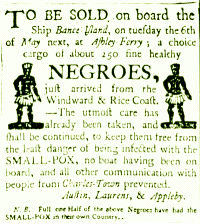 TO BE SOLD on board the
Ship Bance-Island, on tuesday the 6th
of May next, at Ashley-Ferry; a choice
cargo of about 250 fine healthy
NEGROES,
just arrived from the
Windward & Rice Coast.
—The utmost care has
already been taken, and
shall be continued, to keep them free from
the least danger of being infected with the
SMALL-POX, no boat having been on
board, and all other communication with
people from Charles-Town prevented.
Austin, Laurens, & Appleby.
N. B. Full one Half of the above Negroes have had the
SMALL-POX in their own Country.